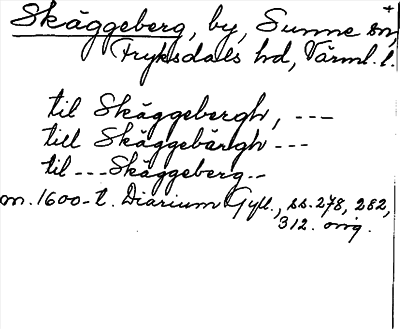 Skäggeberg, by, Sunne sn,
Fryksdals hd, Värml. l.
til Skäggebergh, ---
till Skäggebärgh ---
til --- Skäggeberg --
m. 1600-t. Diarium Gyll., ss. 278, 282,
312. orig.